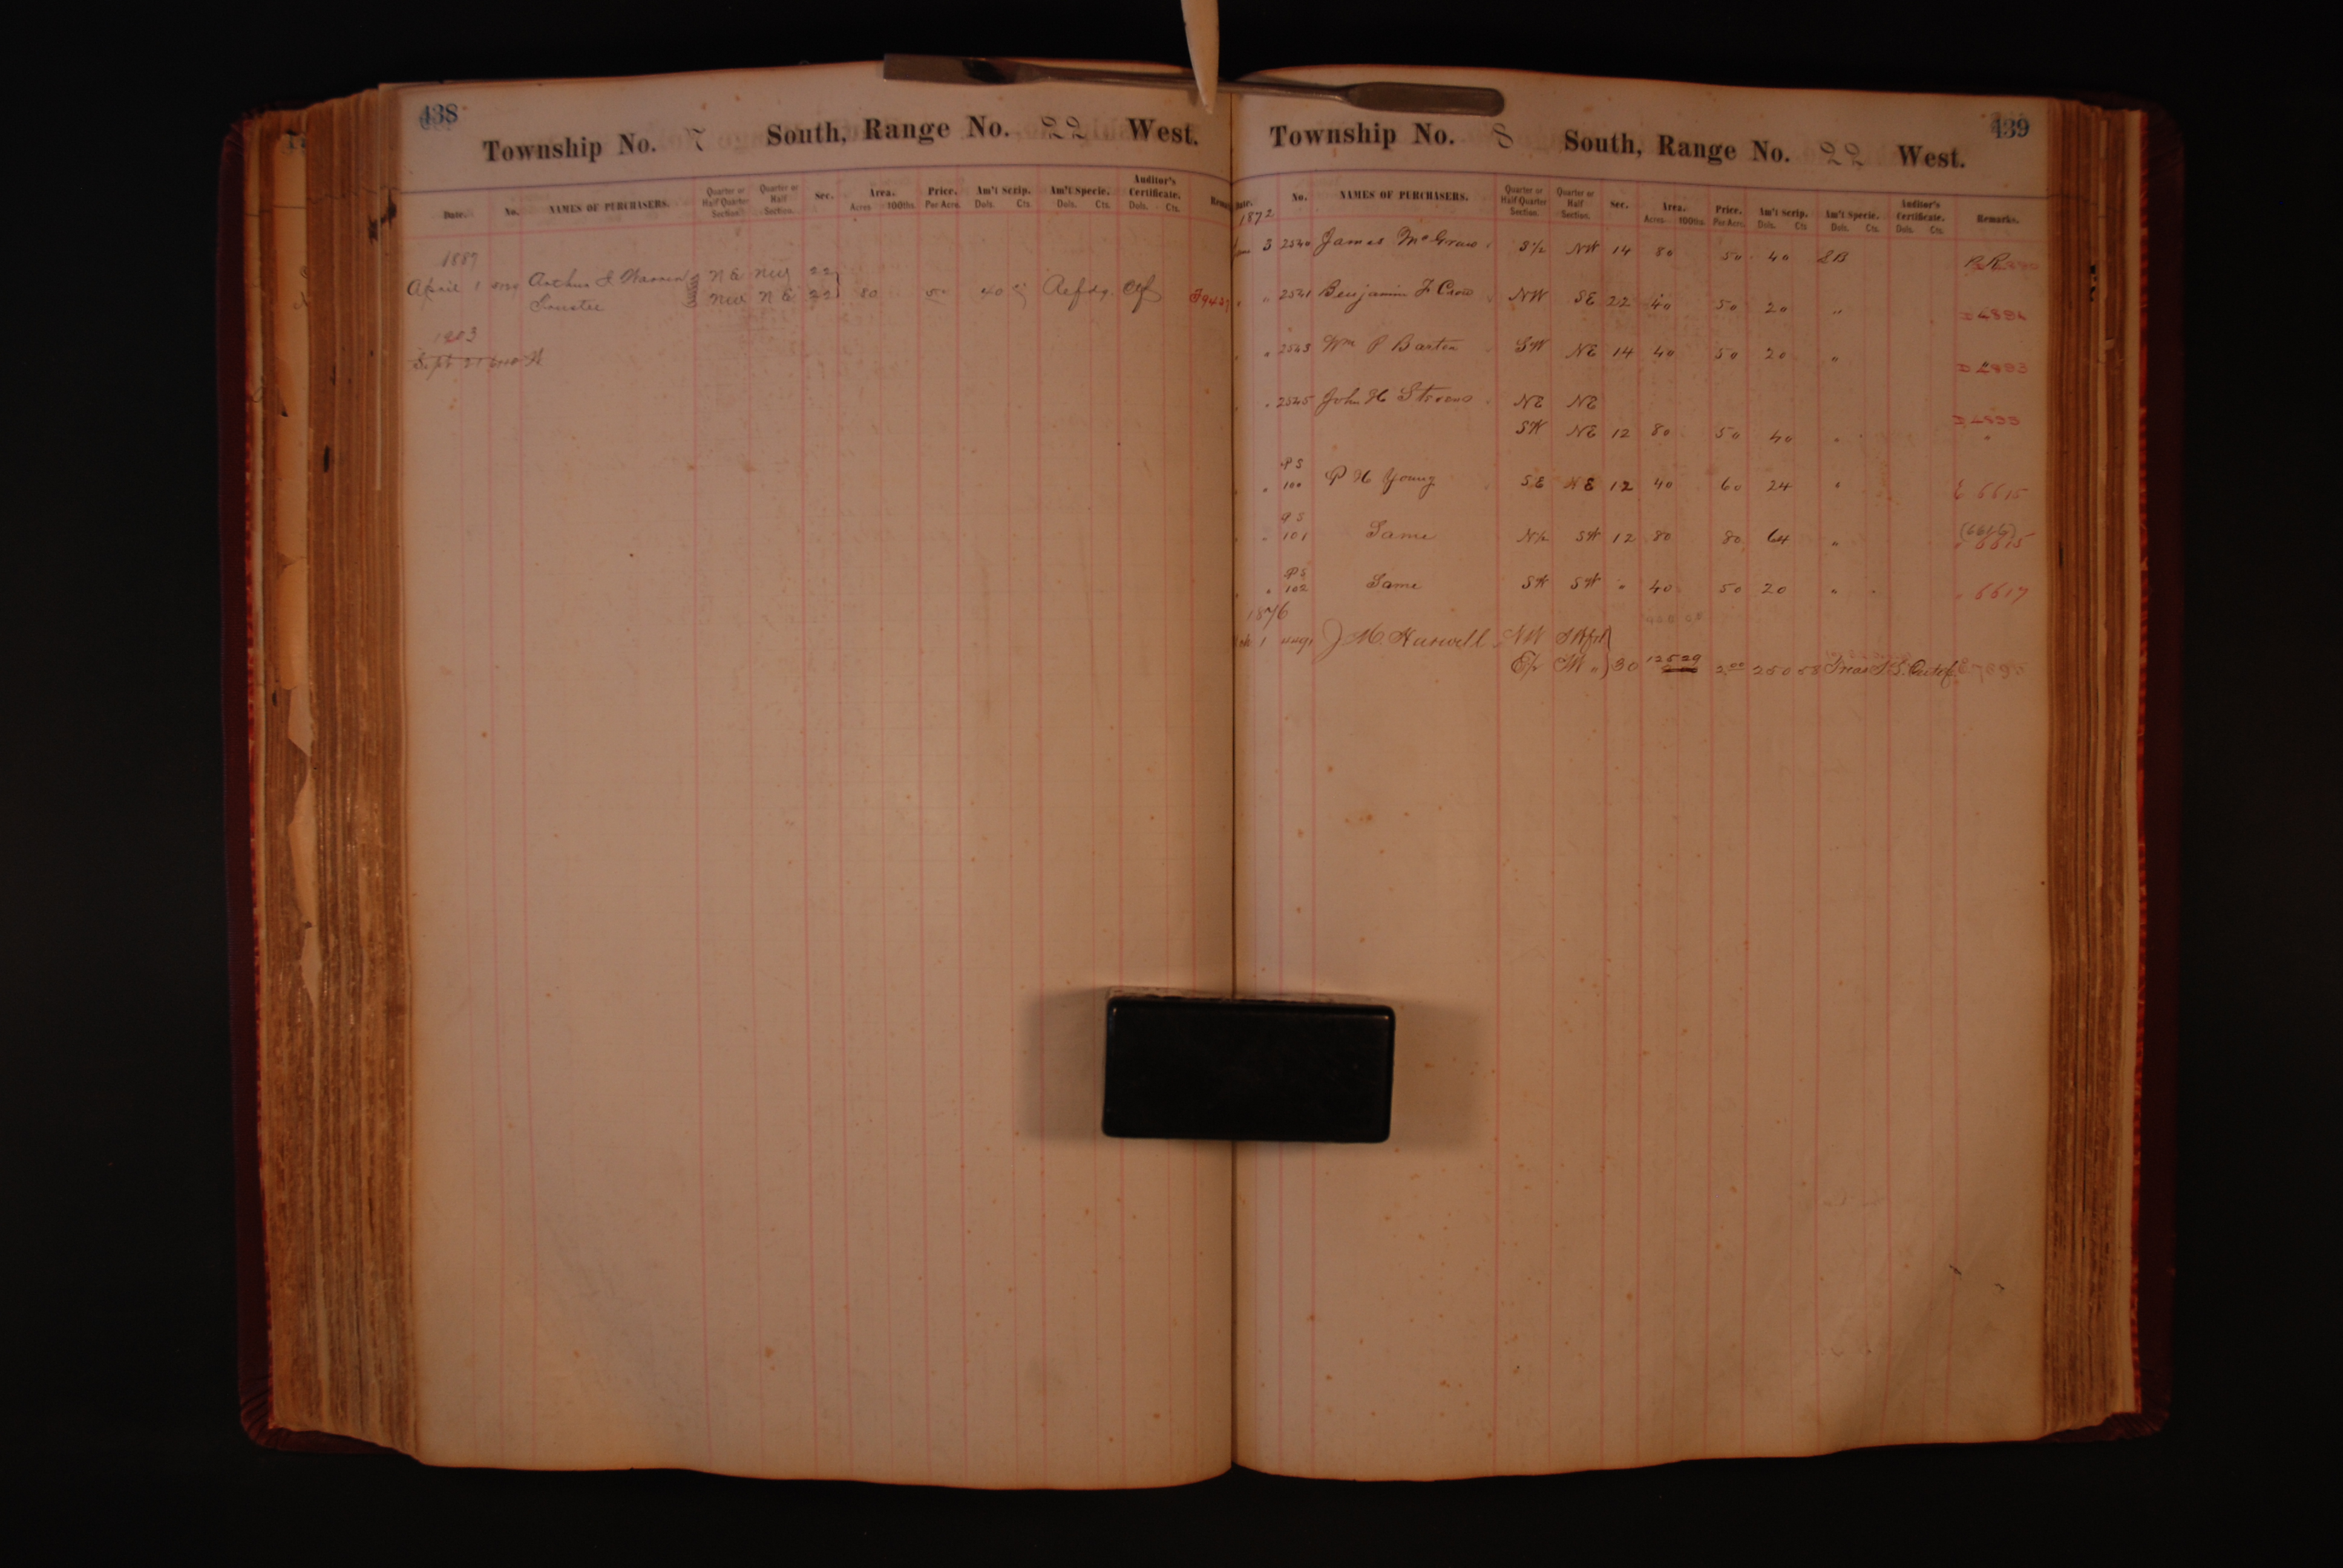 438
Township No. 7 South, Range No. 22 West.
Date. No. NAMES OF PURCHASERS. Quarter or Half Quarter Section. Quarter or Half Section. Sec. Area. Acres 100ths. Price. Per Acre. Am't Scrip. Dols. Cts. Am't Specie. Dols. Cts. Auditor's Certificate. Dols. Cts.
1887
April 1 Arthur Warren NE NW 22
Trustee NW NE 22 80 50 40 Refdg. Ctf
1883
Sept 21
439
Township No. 8 South, Range No. 22 West.
Date. No. NAMES OF PURCHASERS. Quarter or Half Quarter Section. Quarter or Half Section. Sec. Area. Acres 100ths. Price. Per Acre. Am't Scrip. Dols. Cts Am't Specie. Dols. Cts. Auditor's Certificate. Dols. Cts. Remarks.
1872
3 2540 James McGraw S½ NW 14 80 50 40 SB
" 2541 Benjamin F Crow NW SE 22 40 50 20 " 4894
" 2543 Wm P Barton SW NE 14 40 50 20 " 4893
" 2545 John H Stevens NE NE
SW NE 12 80 50 40 "
PS
" 100 P H Young SE NE 12 40 60 24 " 6615
PS
" 101 Same N½ SW 12 80 80 64 " (6616) 6615
PS
" 102 Same SW SW " 40 50 20 " " 6617
1876
1 J M. NW SW frl
E½ SW " 30 125 29 2 00 250 58